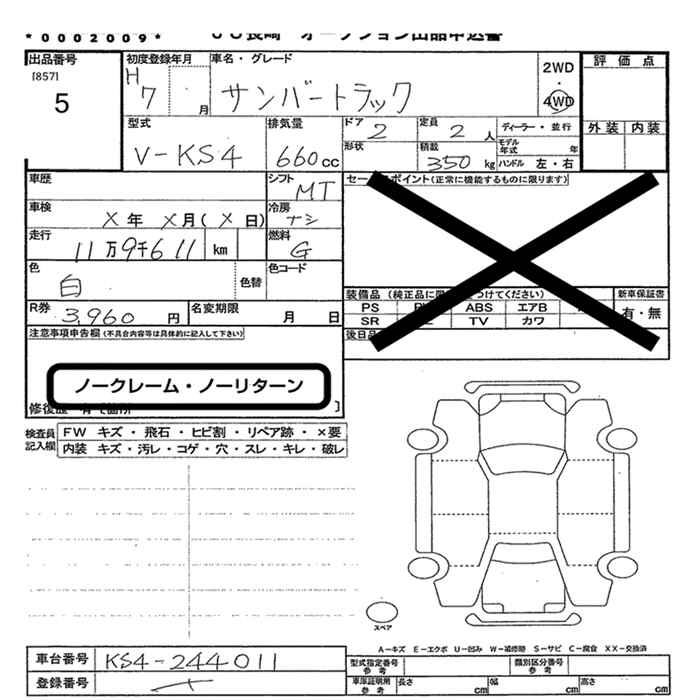 *0002009* JU長崎 オークション出品申込書
出品番号
[857]
5
初度登録年月
H7 月
車名・グレード
サンバートラック
2WD
・
4WD
評価点
外装 内装
型式
V-KS4
排気量
660cc
ドア 2
形状
定員 2人
積載 350kg
ディーラー・並行
モデル年式 年
ハンドル 左・右
車歴
シフト MT
セールスポイント(正常に機能するものに限ります)
車検
X年 X月(X日)
冷房 ナシ
走行
11万9千611 km
燃料 G
色
白
色替
色コード
R券 3,960円
名変期限 月 日
装備品
新車保証書
有・無
PS ABS エアB
SR TV カワ
後日品
注意事項申告欄(不具合内容等は具体的に記入して下さい)
ノークレーム・ノーリターン
検査員記入欄
FW キズ・飛石・ヒビ割・リペア跡・×要
内装 キズ・汚レ・コゲ・穴・スレ・キレ・破レ
スペア
A-キズ E-エクボ U-凹み W-補修跡 S-サビ C-腐食 XX-交換済
車台番号 KS4-244011
登録番号
型式指定番号 参考
類別区分番号 参考
車庫証明用 参考 長さ cm 幅 cm 高さ cm